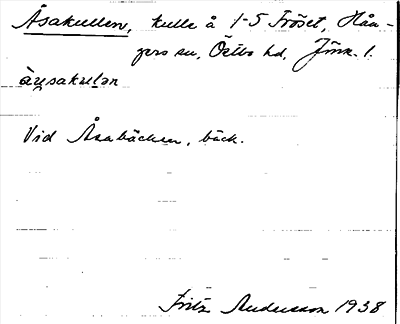 Åsakullen, kulle å 1-5 Fröset, Hån-
gers sn, Östbo hd, Jönk. l.
åsakulən
Vid Åsabäcken, bäck.
Fritz Andersson 1938